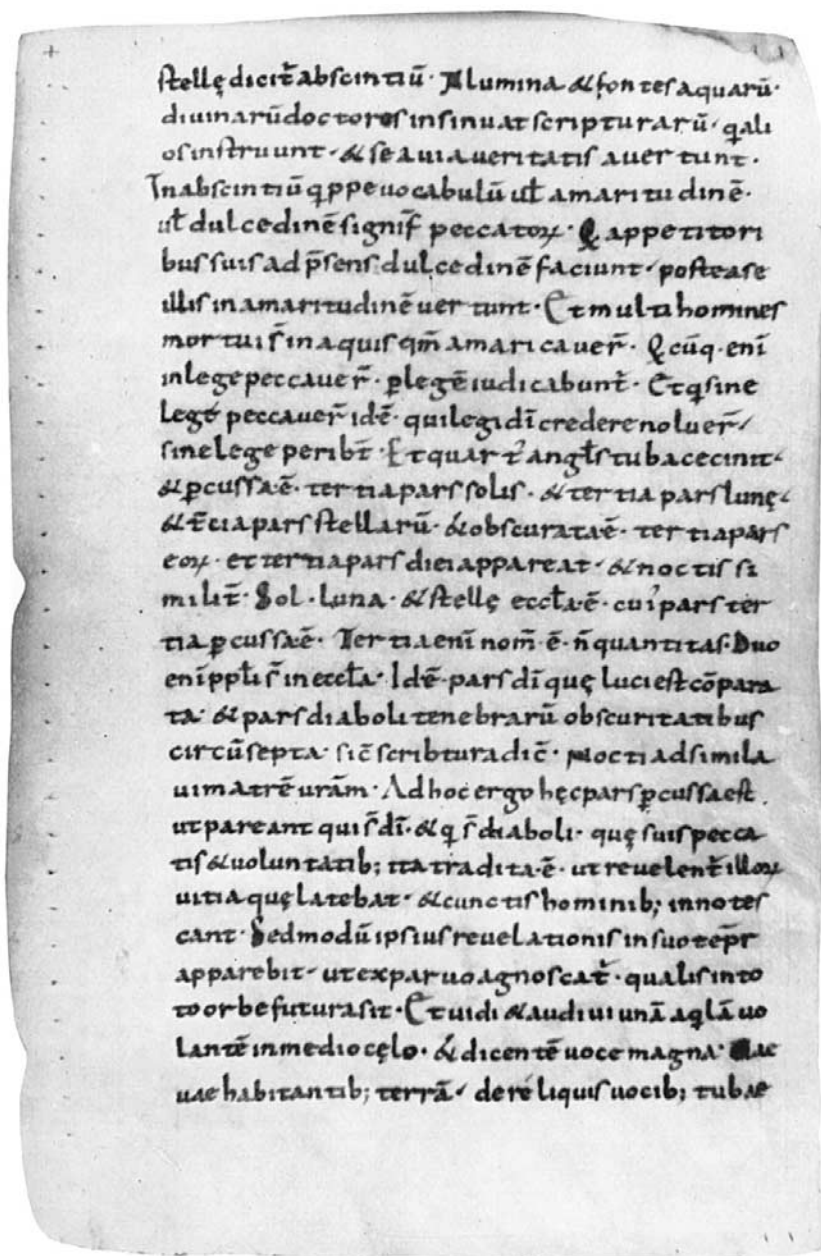 stellę dicit̄ abscintiū · Flumina & fontes aquarū ·
diuinarū doctores insinuat scripturarū · q̄ ali
os instruunt · & se a uia ueritatis auertunt ·
In abscintiū q̄ppe uocabulū ul̄ amaritudinē ·
ul̄ dulcedinē signif̄ peccatoꝝ · Q̄ appetitori
bus suis ad p̄sens dulcedinē faciunt · postea se
illis in amaritudinē uertunt · Et multi homines
mortui s̄ in aquis qm̄ amaricauer̄ · Q̄cūq · enī
in lege peccauer̄ · ꝑ legē iudicabunt̄ · Et q̄ sine
lege peccauer̄ idē · qui legi dī credere noluer̄ ·
sine lege peribt̄ · Et quart᾿ angl̄s tuba cecinit ·
& ꝑcussa ē · tertia pars solis · & tertia pars lunę ·
& t̄cia pars stellarū · & obscurata ē · tertia pars
eoꝝ · et tertia pars diei appareat · & noctis si
milit̄ · Sol · luna · & stellę eccl̄a ē · cui᾿ pars ter
tia ꝑcussa ē · Tertia enī nom̄ ē · n̄ quantitas · Duo
enī ppl̄i s̄ in eccl̄a · Idē · pars dī quę luci est cōpara
ta · & pars diaboli tenebrarū obscuritatibus
circūsepta · sic̄ scribtura dic̄ · Nocti adsimila
ui matrē urām · Ad hoc ergo hęc pars ꝑcussa est
ut pareant qui s̄ dī · & q̄ s̄ diaboli · quę suis pecca
tis & uoluntatib; ita tradita ē · ut reuelent̄ illoꝝ
uitia quę latebat · & cunctis hominib; innotes
cant · Sed modū ipsius reuelationis in suo tēpr
apparebit · ut ex paruo agnoscat̄ · qualis in to
to orbe futura sit · Et uidi & audiui unā aq̄lā uo
lantē in medio cęlo · & dicentē uoce magna · uae
uae habitantib; terrā · de reliquis uocib; tubae